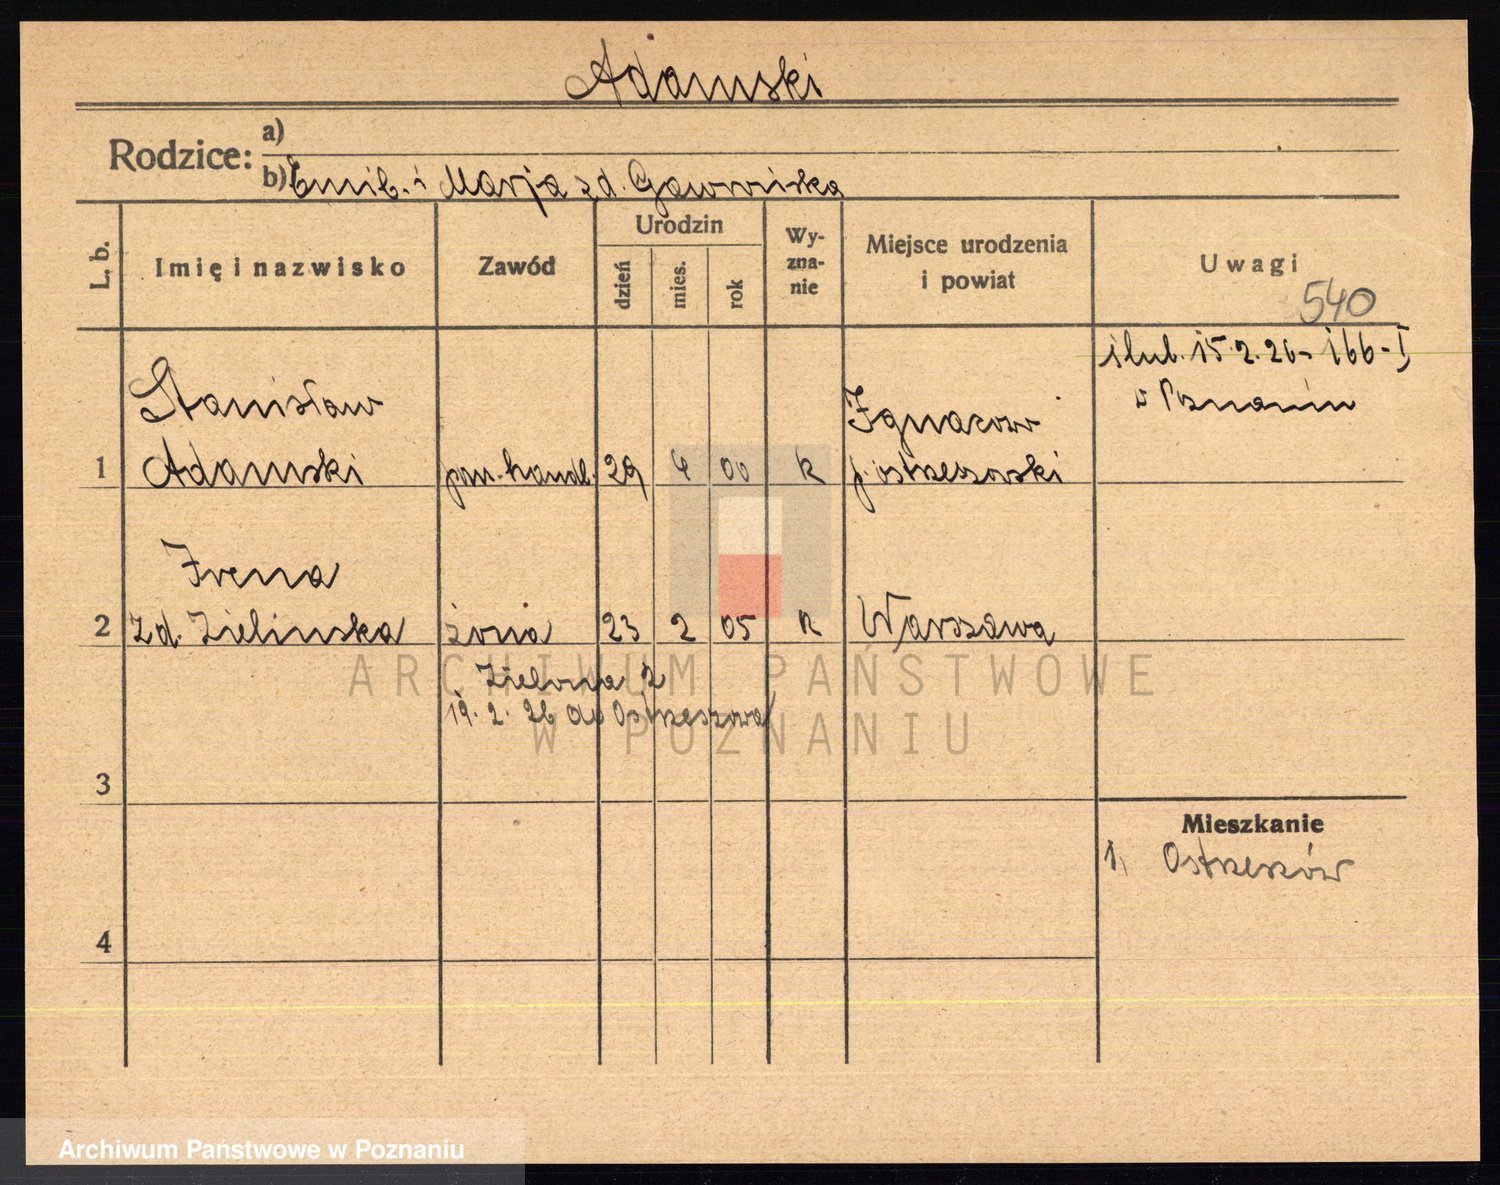 Adamski
Rodzice: a)
b) Emil. i Marja zd. Gawrońska
L. b.
Imię i nazwisko
Zawód
Urodzin
dzień
mies.
rok
Wy-
zna-
nie
Miejsce urodzenia
i powiat
Uwagi
540
ślub. 15.2.26 166-I
w Poznaniu
Stanisław
1 Adamski pom. handl. 29 4 00 K
Ignacow
p. ostrzeszowski
Irena
2 zd. Zielinska żona 23 2 05 K Warszawa
Zielona 2
19. 2. 26 do Ostrzeszowa
3
Mieszkanie
1, Ostrzeszów
4
ARCHIWUM PAŃSTWOWE
W POZNANIU
Archiwum Państwowe w Poznaniu